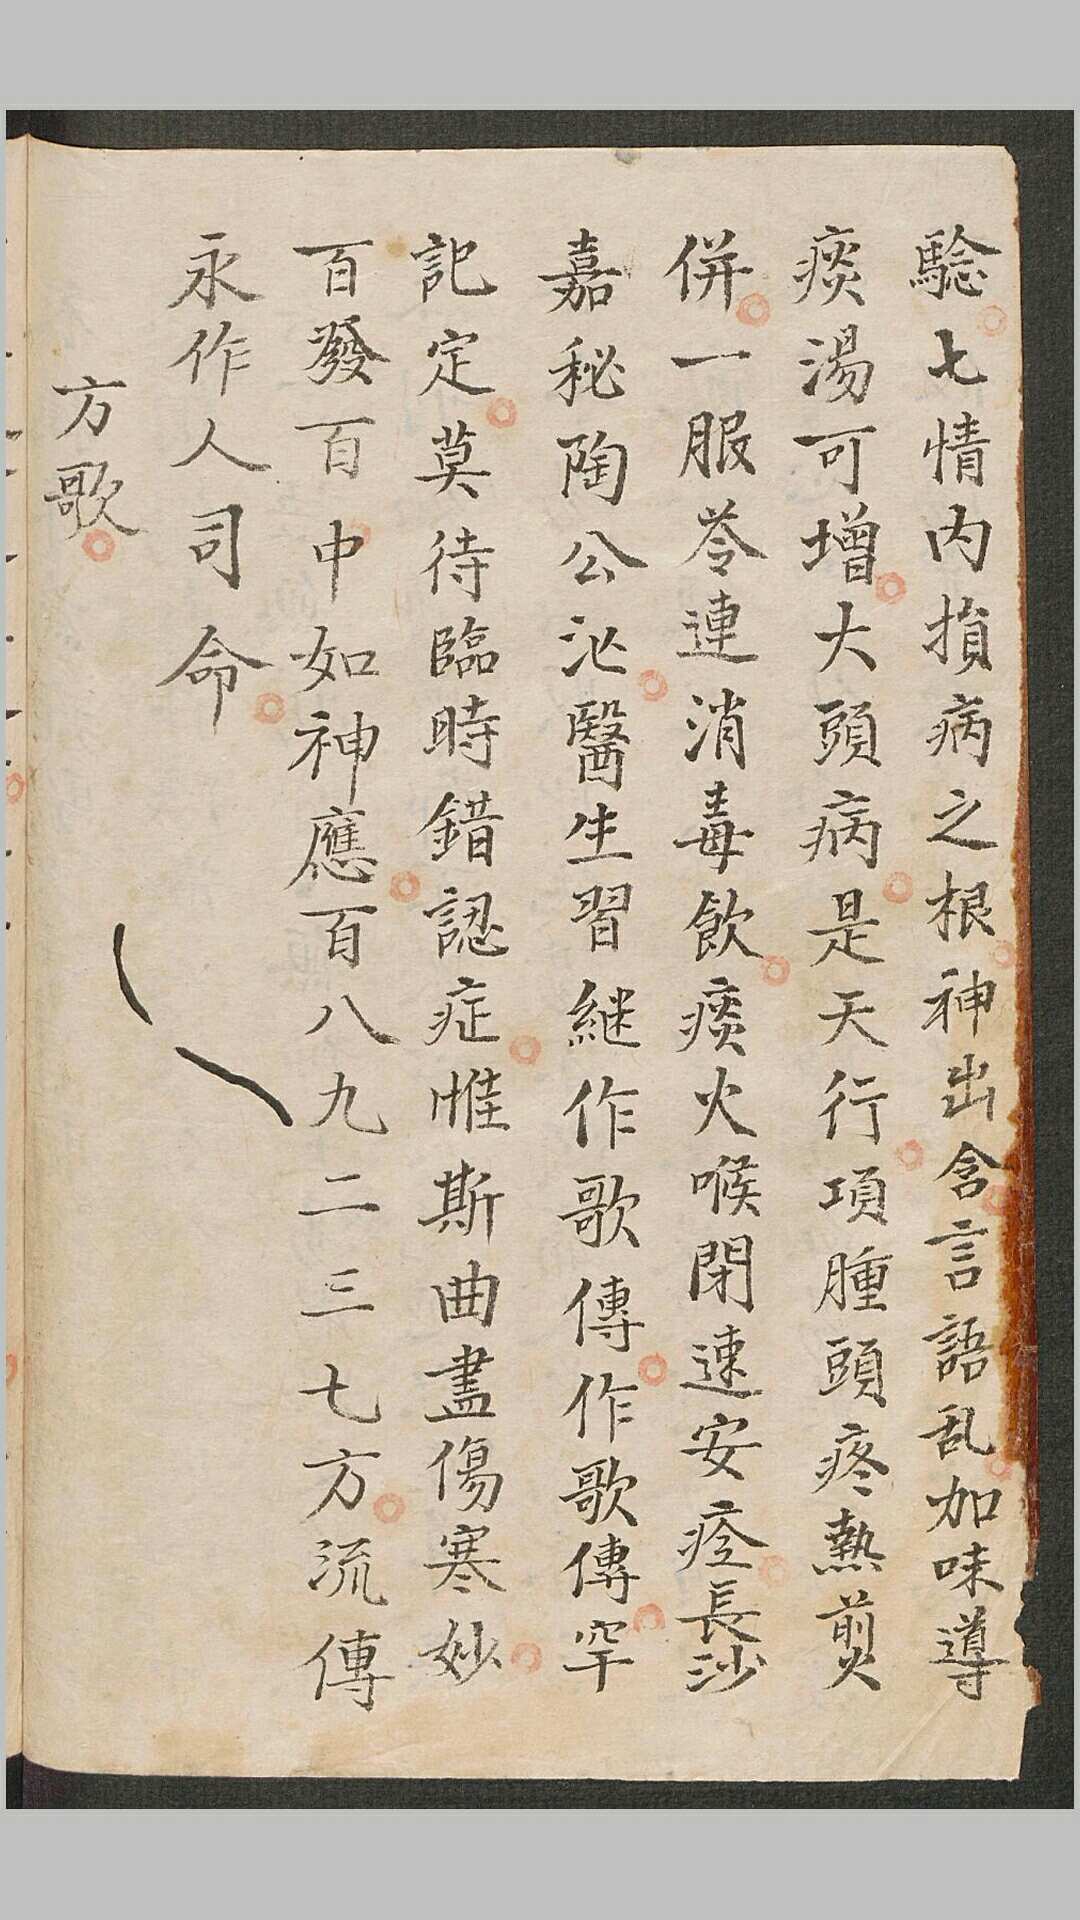 騐七情内損病之根神出舍言語乱加味導
痰湯可增大頭病是天行項腫頭疼熱煎
併一服芩連消毒飲痰火喉閉速安痊長沙
嘉秘陶公泌醫生習継作歌傳作歌傳罕
記定莫待臨時錯認症惟斯曲盡傷寒妙
百發百中如神應百八九二三七方流傳
永作人司命
方歌